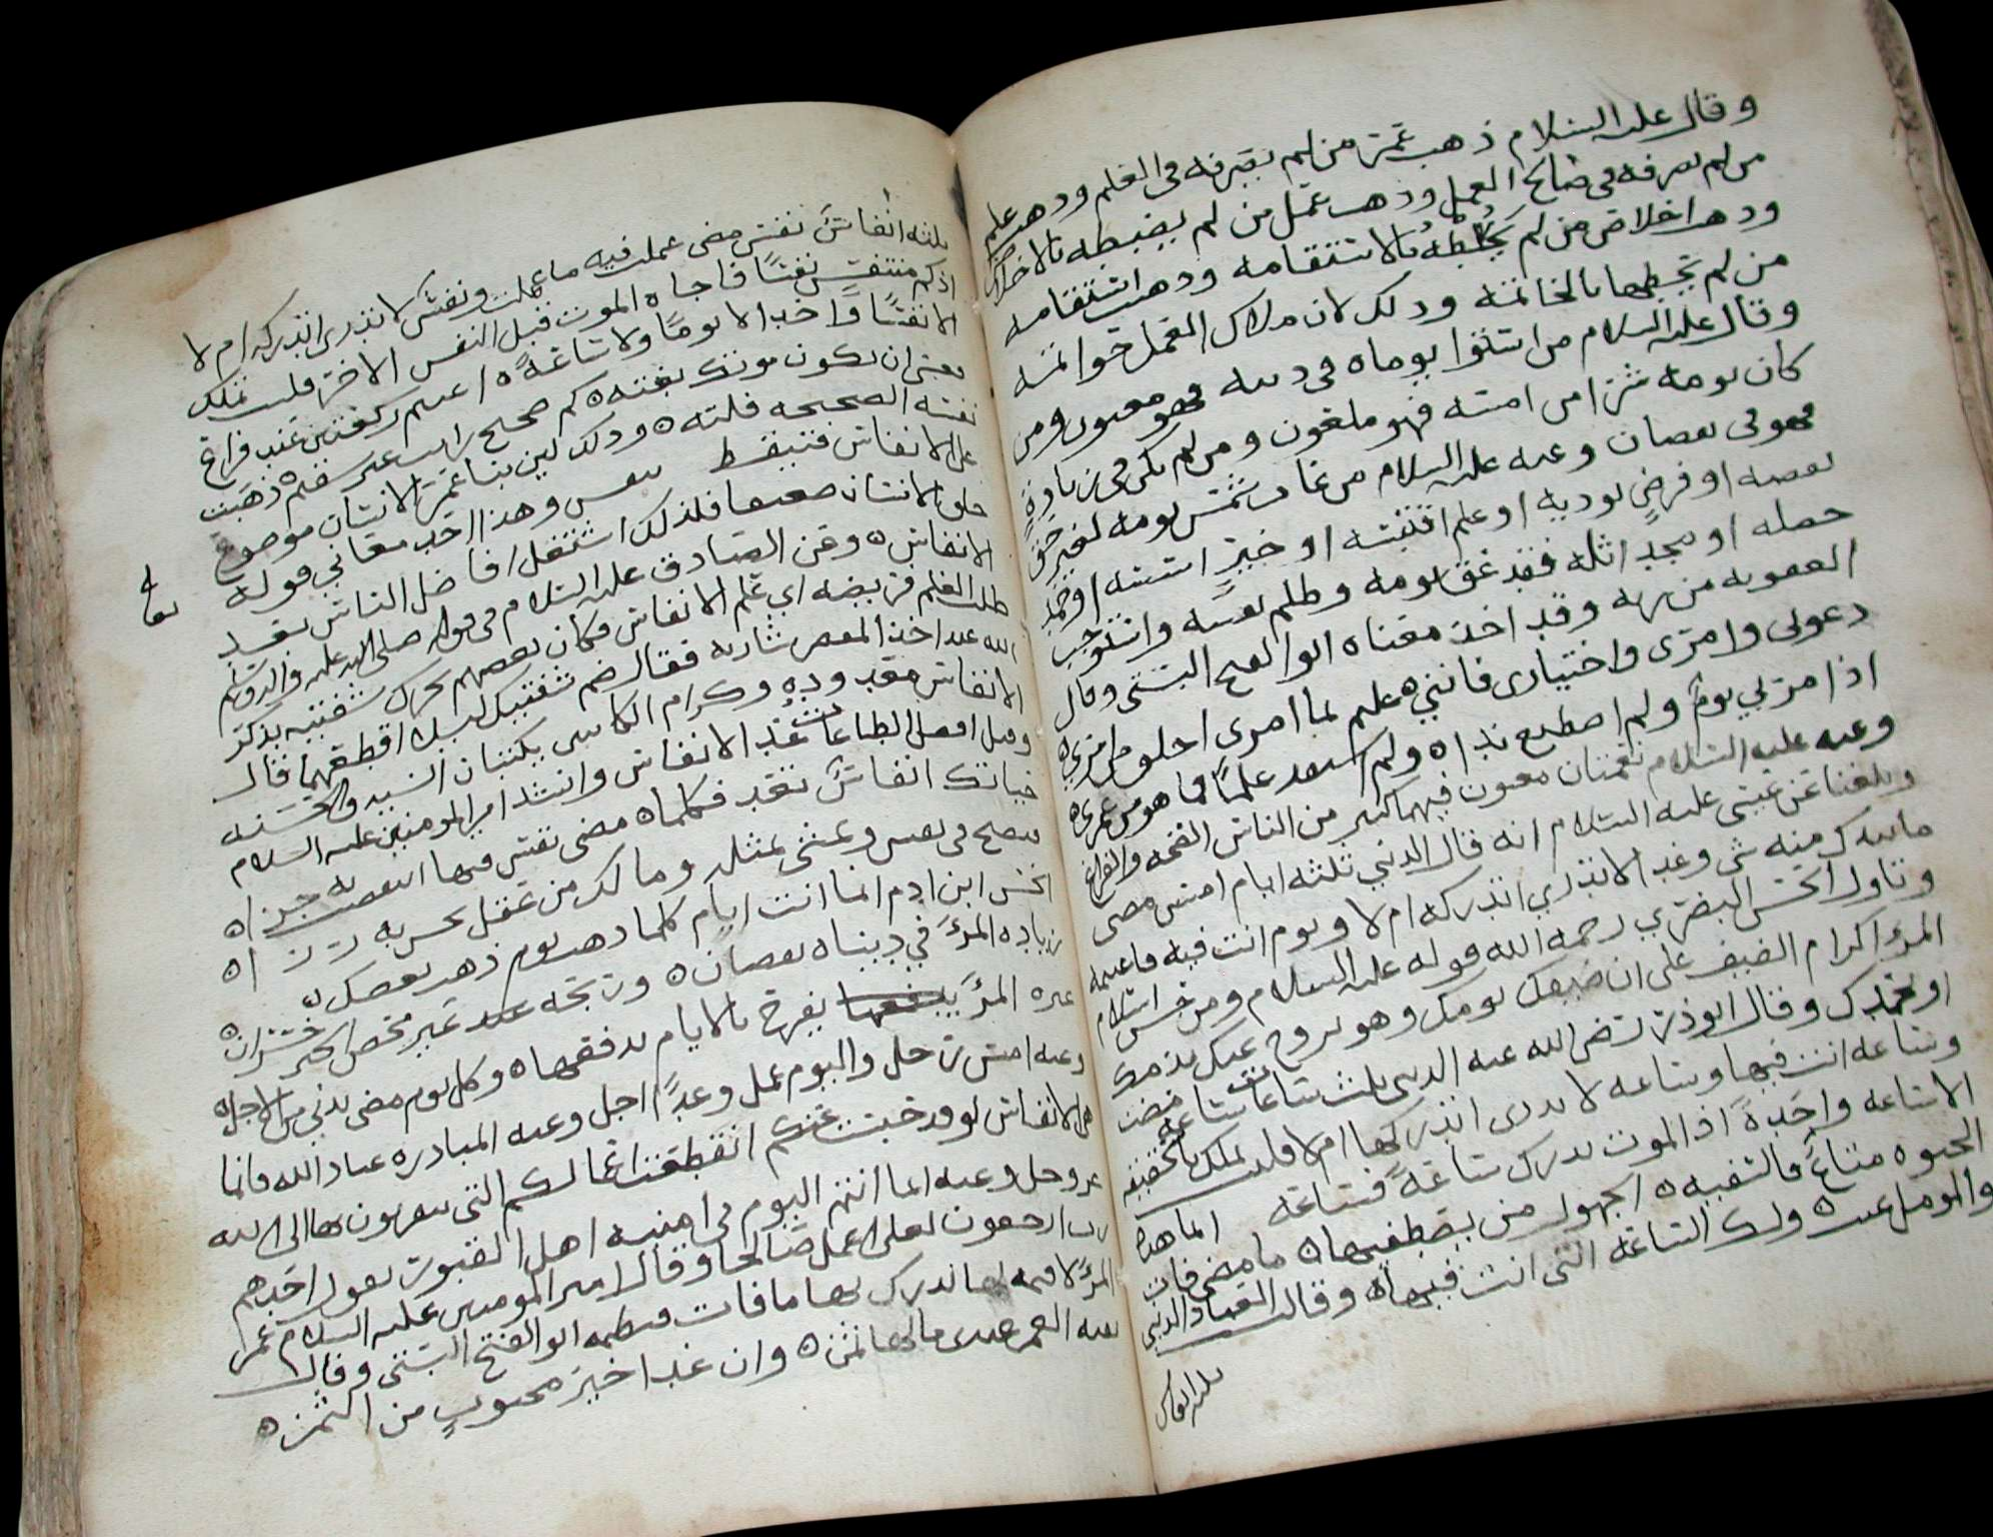 وقال عليه السلام ذهب عمر من لم يصرفه في العلم وذهب علم
من لم يصرفه في صالح العمل وذهب عمل من لم يضبطه بالاخلاص
وذهب اخلاص من لم يحطه بالاستقامه وذهب استقامه
من لم يحطها بالخاتمه وذلك لان ملاك العمل خواتمه
وقال عليه السلام من استوا يوماه في دينه فهو مغبون ومن
كان يومه شرا من امسه فهو ملعون ومن لم يكن في زيادة
فهو في نقصان وعنه عليه السلام من غابت شمس يومه لغير حق
قضيه او فرض يوديه او علم اقتبسه او خير اسسه او حمد
حصله او مجد اثله فقد عق يومه وظلم نفسه واستوجب
العقوبه من ربه وقد اخذ معناه ابو الفتح البستي وقال
دعوني وامري واختياري فانني ه عليم بما امري اخلق من امري ه
اذا مر بي يوم ولم اصطنع يدا ه ولم استفد علما فما هو من عمري ه
وعنه عليه السلام نعمتان مغبون فيهما كثير من الناس الصحه والفراغ
وبلغنا عن عيسى عليه السلام انه قال الدني ثلثه ايام امس مضى
ما بيدك منه شي وغد لا تدري اتدركه ام لا ويوم انت فيه فاغتنمه
وتاول الحسن البصري رحمه الله قوله عليه السلام ومن حسن اسلام
المرء اكرام الضيف على ان ضيفك يومك وهو يروح عنك بذمك
او بحمدك وقال ابو ذر رضي الله عنه الدني ثلث ساعات ساعه مضت
وساعه انت فيها وساعه لا تدري اتدركها ام لا فلست تملك بالحقيقه
الا ساعه واحدة اذ الموت يدرك ساعة فساعه انما هذه
الحيوه متاع فالسفيه ه الجهول من يصطفيها ه ما مضى فات
والمومل غيب ه ولك الساعه التي انت فيها ه وقال العباد الدني
ثلثه انفاس
ثلثه انفاس نفس مضى عملت فيه ما عملت ونفس لا تدري اتدركه ام لا
اذ كم متنفس نفسا فاجاه الموت قبل النفس الاخر فلست تملك
الا نفسا واحدا لا يوما ولا ساعة ه اغتنم ركعتين عند فراغ
فعسى ان يكون موتك بغته ه كم صحيح رايت غير سقيم ه ذهبت
نفسه الصحيحه فلته ه وذلك لان بنا عمر الانسان موضوع
على الانفاس فبنفسط نفس وهذا احد معاني قوله تعالى
خلق الانسان ضعيفا فلذلك اشتغل افاضل الناس بقيد
الانفاس ه وعن الصادق عليه السلام في قوله صلى الله عليه واله وسلم
طلب العلم فريضه اي علم الانفاس فكان بعضهم يحرك شفتيه بذكر
الله عند اخذ المقص شاربه فقال ضم شفتيك لئلا اقطعهما قال
الانفاس معدوده وكرام الكاتبين يكتبان السيه والحسنه
وقيل افضل الطاعات عد الانفاس وانشد امير المومنين عليه السلام
حياتك انفاس تعد فكلما ه مضى نفس منها انتقصت به جزا ه
فتصبح في نقص وتمسى بمثله وما لك من عقل تحس به رزا ه
الحسن ابن ادم انما انت ايام كلما ذهب يوم ذهب بعضك ه
زياده المرء في دنياه نقصان ه وربحه غير محض الخير خسران ه
غيره المرء يفرح بالايام يدفعها ه وكل يوم مضى يدني من الاجل ه
وعنه امس رحل واليوم عمل وغدا اجل وعنه المبادره عباد الله فانما
هي الانفاس لو قد حبست عنكم انقطعت اعمالكم التي تتقربون بها الى الله
عز وجل وعنه انما انتم اليوم في امنيه اهل القبور يقول احدهم
رب ارجعون لعلي اعمل صالحا وقال امير المومنين عليه السلام عمر
المرء لا قيمه لها يدرك بها ما فات فنظمه ابو الفتح البستي وقال
بقيه العمر عندي ما لها ثمن ه وان غدا خير محبوب من الثمن ه